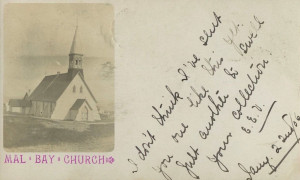 MAL · BAY · CHURCH
I don't think I've sent
you one like this yet.
Just another to swell
your collection
E.E.D.
Jany. 22nd/06